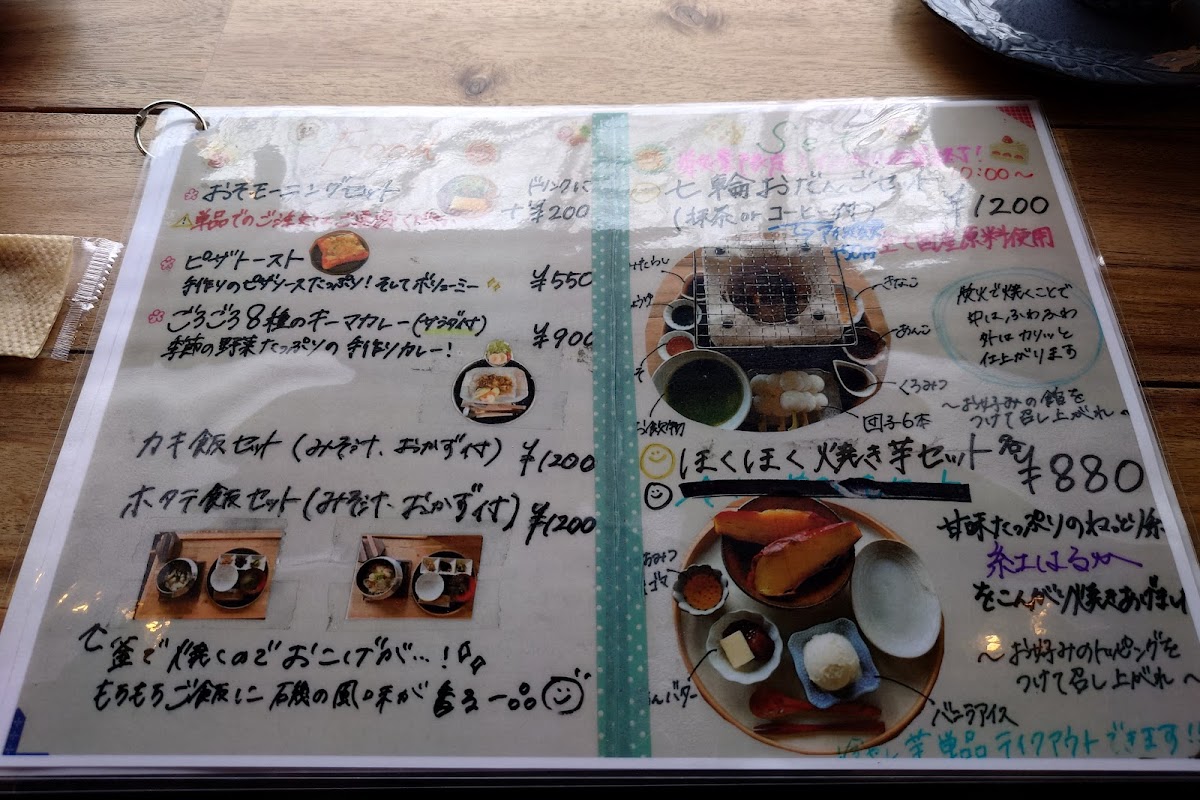 おそモーニングセット
ドリンクに
+¥200
ピザトースト
手作りのピザソースたっぷり!そしてボリューミー
¥550
ごろごろ8種のキーマカレー(サラダ付)
¥900
季節の野菜たっぷりの手作りカレー!
カキ飯セット(みそ汁、おかず付)
¥1200
ホタテ飯セット(みそ汁、おかず付)
¥1200
釜で焼くのでおこげが…!
もちもちご飯に磯の風味が香る一品
Set
七輪おだんごセット
¥1200
(抹茶orコーヒー付)
国産原料使用
みたらし
きなこ
あんこ
くろみつ
団子6本
お飲物
炭火で焼くことで
中は、ふわふわ
外はカリッと
仕上がります
〜お好みの餡を
つけて召し上がれ〜
ほくほく焼き芋セット
¥880
甘味たっぷりのねっとり系
紅はるか
をこんがり焼きあげまし
〜お好みのトッピングを
つけて召し上がれ〜
バター
バニラアイス
芋単品テイクアウトできます!!